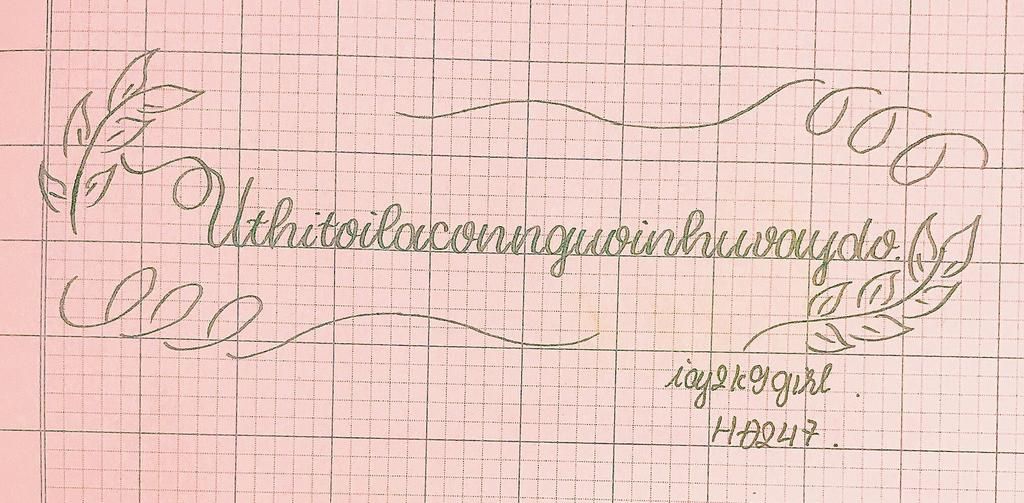 Uthitoilaconnguoinhuvaydo.
ioy2k9girl.
HĐ247.